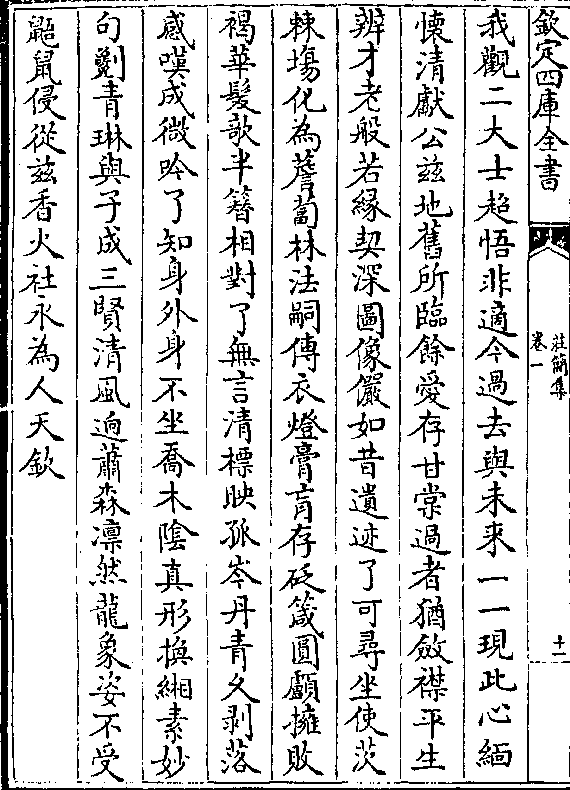 欽定四庫全書
莊簡集
卷一
十一
我觀二大士超悟非適今過去與未來一一現此心緬
懐清獻公兹地舊所臨餘愛存甘棠過者猶斂襟平生
辨才老般若縁契深圖像儼如昔遺迹了可尋坐使茨
棘塲化為薝蔔林法嗣傳衣燈膏肓存砭箴圓顱擁敗
褐華髪歌半簮相對了無言清標映孤岑丹青久剥落
感嘆成微吟了知身外身不坐喬木隂真形換緗素妙
句劖青琳與子成三賢清風逈蕭森凛然龍象姿不受
鼯鼠侵從兹香火社永為人天欽